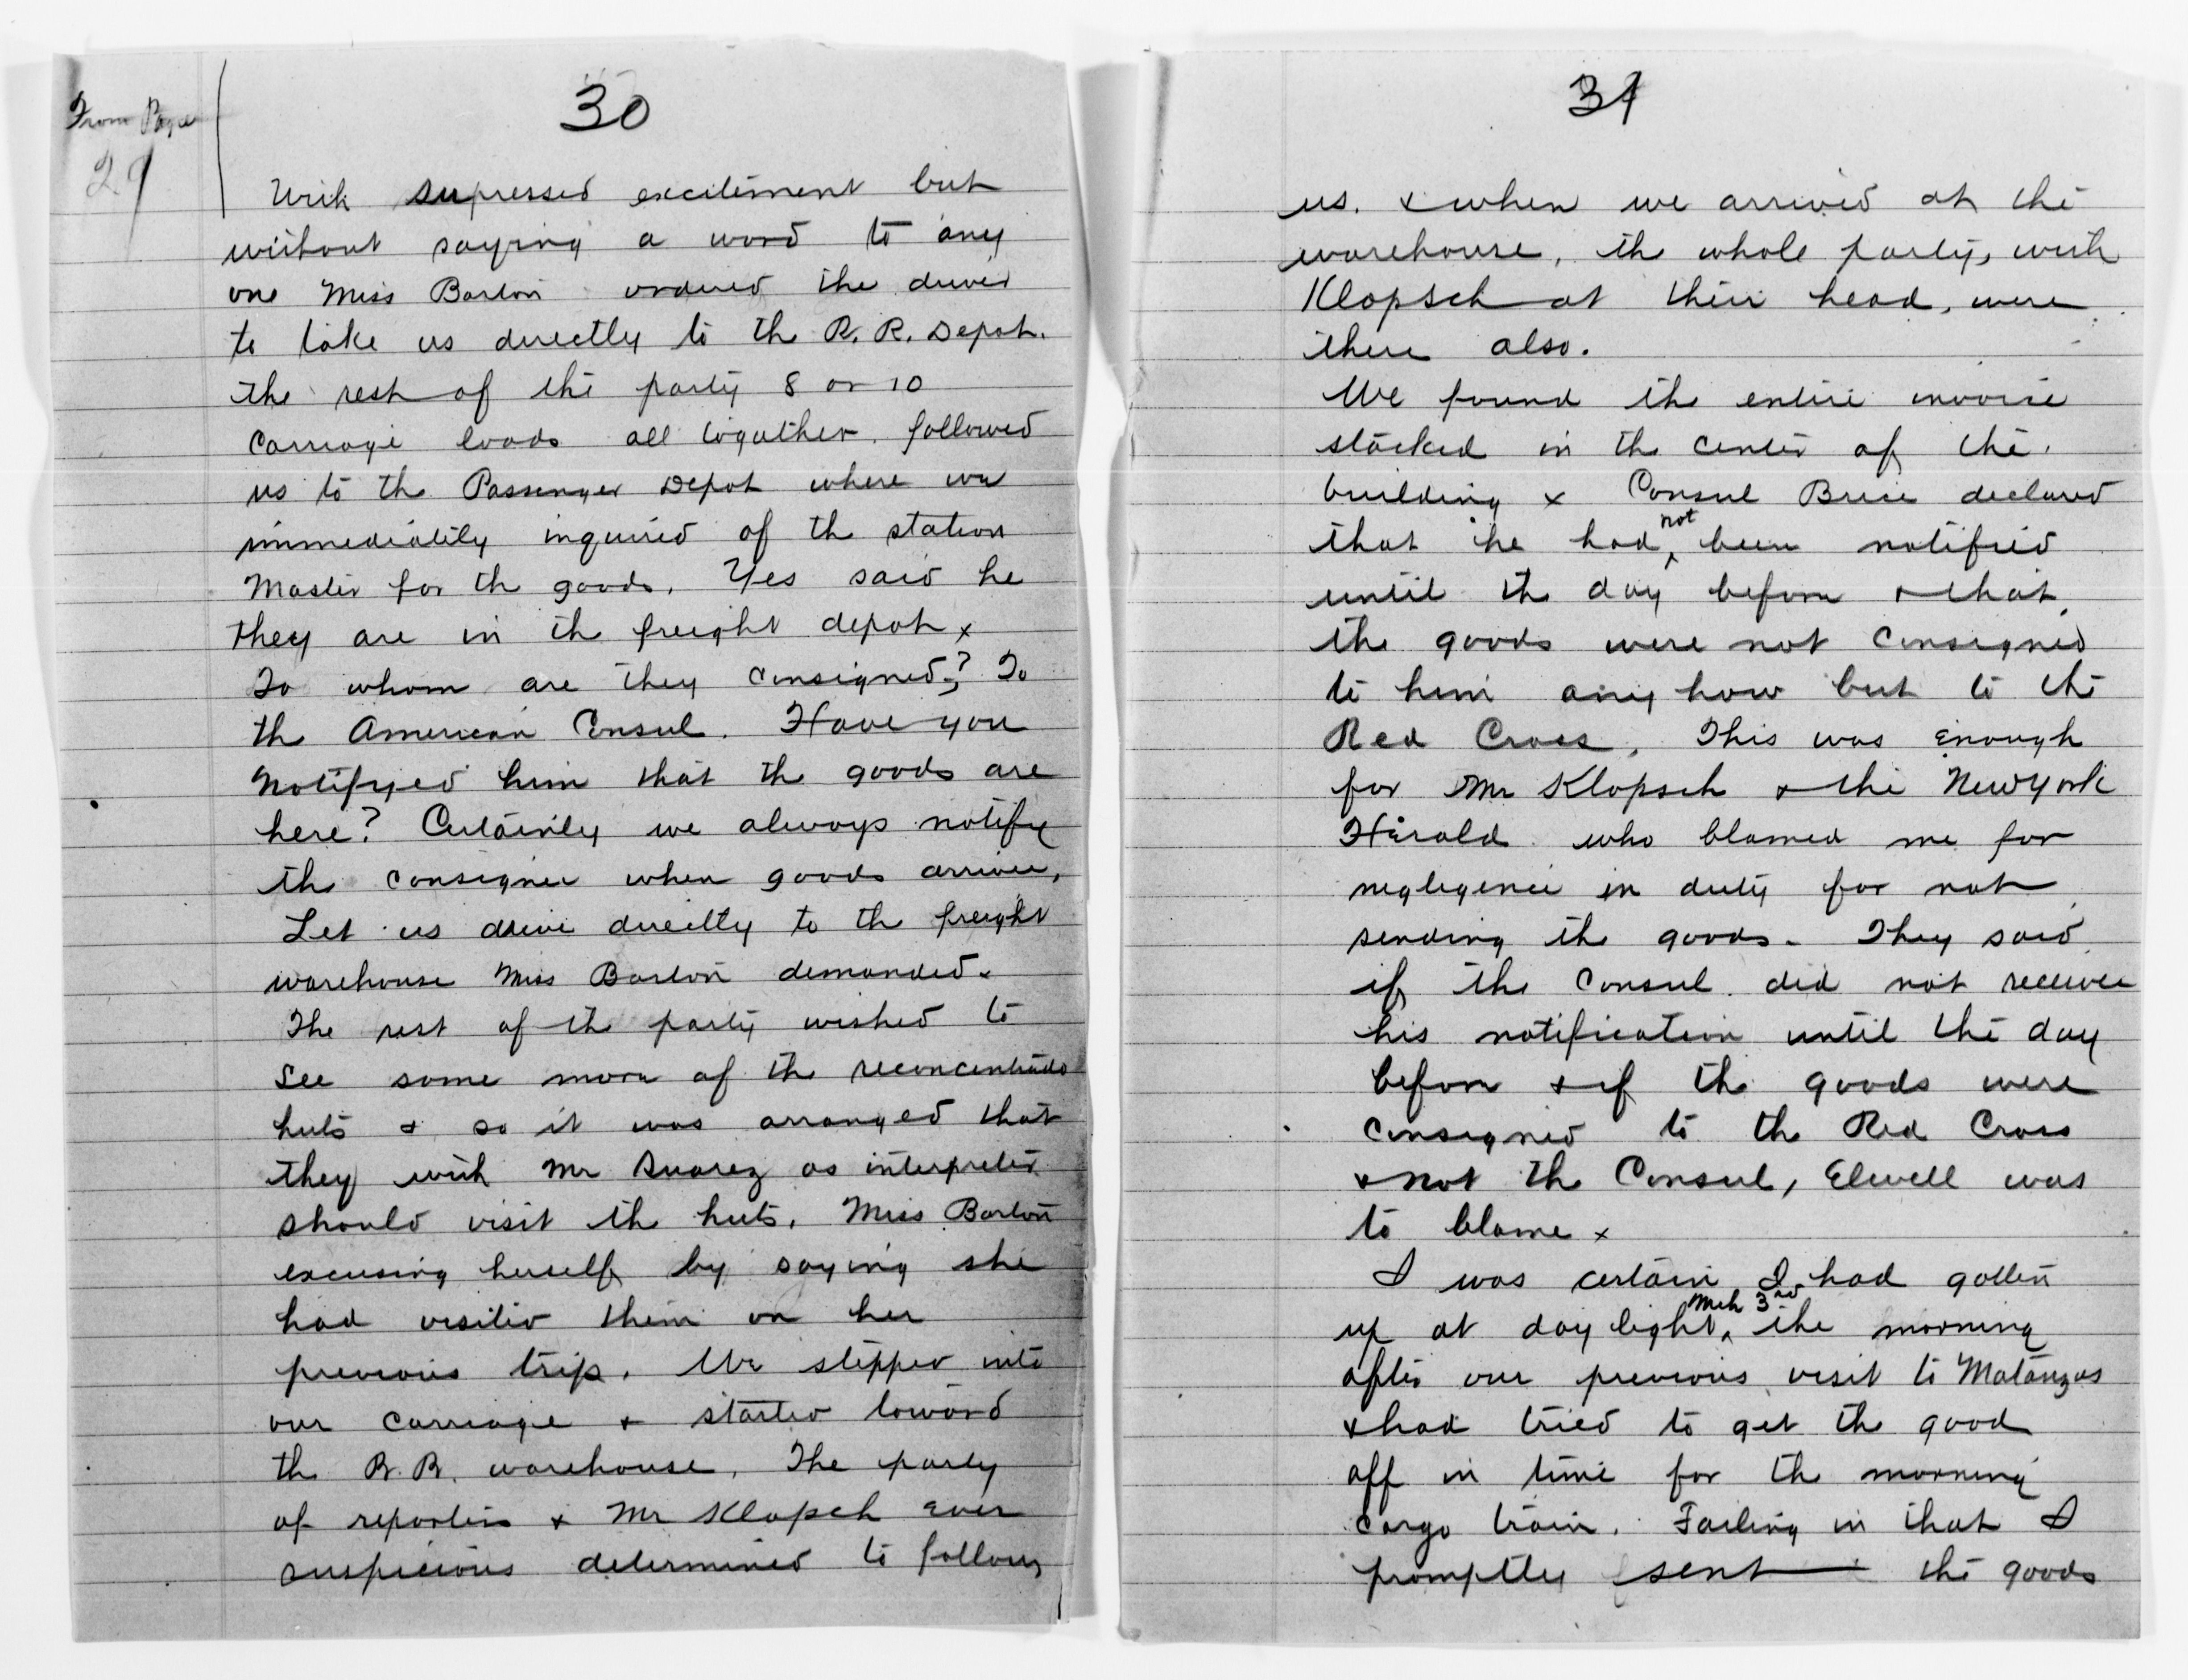 From Page
29
30
With supressed excitement but
without saying a word to any
one Miss Barton ordered the driver
to take us directly to the R. R. Depot.
the rest of the party 8 or 10
carriage loads all togather. followed
us to the Passenger Depot where we
immediately inquired of the station
Master for the goods. Yes said he
they are in the freight depot x
To whom are they consigned? To
the American Consul. Have you
notifyed him that the goods are
here? Certainly we always notify
the consignee when goods arrive.
Let us drive directly to the freight
warehouse Miss Barton demanded.
The rest of the party wished to
see some more of the reconcentrado
huts & so it was arranged that
they with Mr Suarez as interpreter
should visit the huts. Miss Barton
excusing herself by saying she
had visited them on her
previous trip. We stepped into
our carriage & started toward
the R. R. warehouse. The party
of reporters & Mr Klopsch ever
suspicious determined to follow
31
us. & when we arrived at the
warehouse, the whole party, with
Klopsch at their head, were
there also.
We found the entire invoice
stacked in the center of the
building & Consul Brice declared
that he had not been notified
until the day before & that
the goods were not consigned
to him any how but to the
Red Cross. This was enough
for Mr Klopsch & the New York
Herald who blamed me for
negligence in duty for not
sending the goods. They said
if the Consul did not receive
his notification until the day
before & if the goods were
consigned to the Red Cross
& not the Consul, Elwell was
to blame x
I was certain I had gotten
up at day light, Mch 3rd the morning
after our previous visit to Matanzas
& had tried to get the good
off in time for the morning
cargo train. Failing in that I
promptly sent the goods